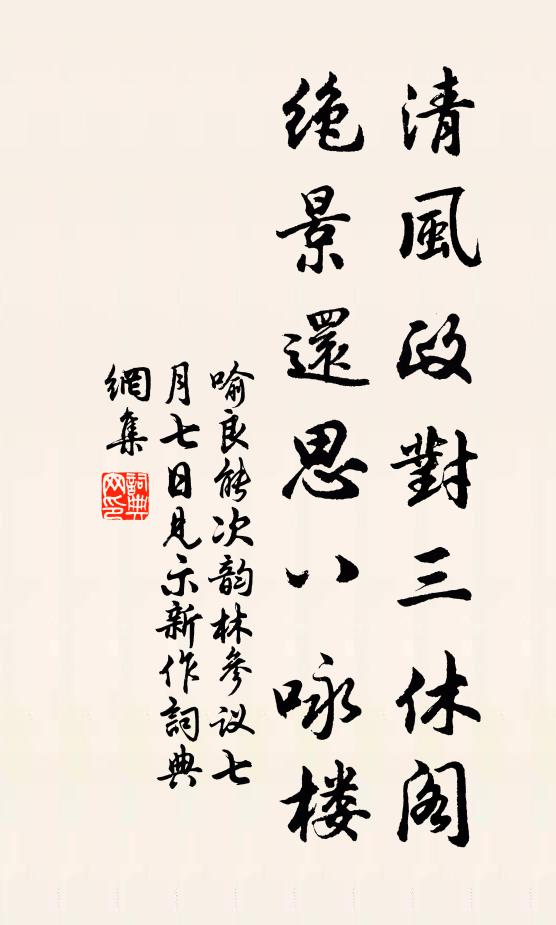 清風政對三休阁
绝景還思八咏楼
喻良能次韵林參议七
月七日見示新作詞典
網集
詞典
网印